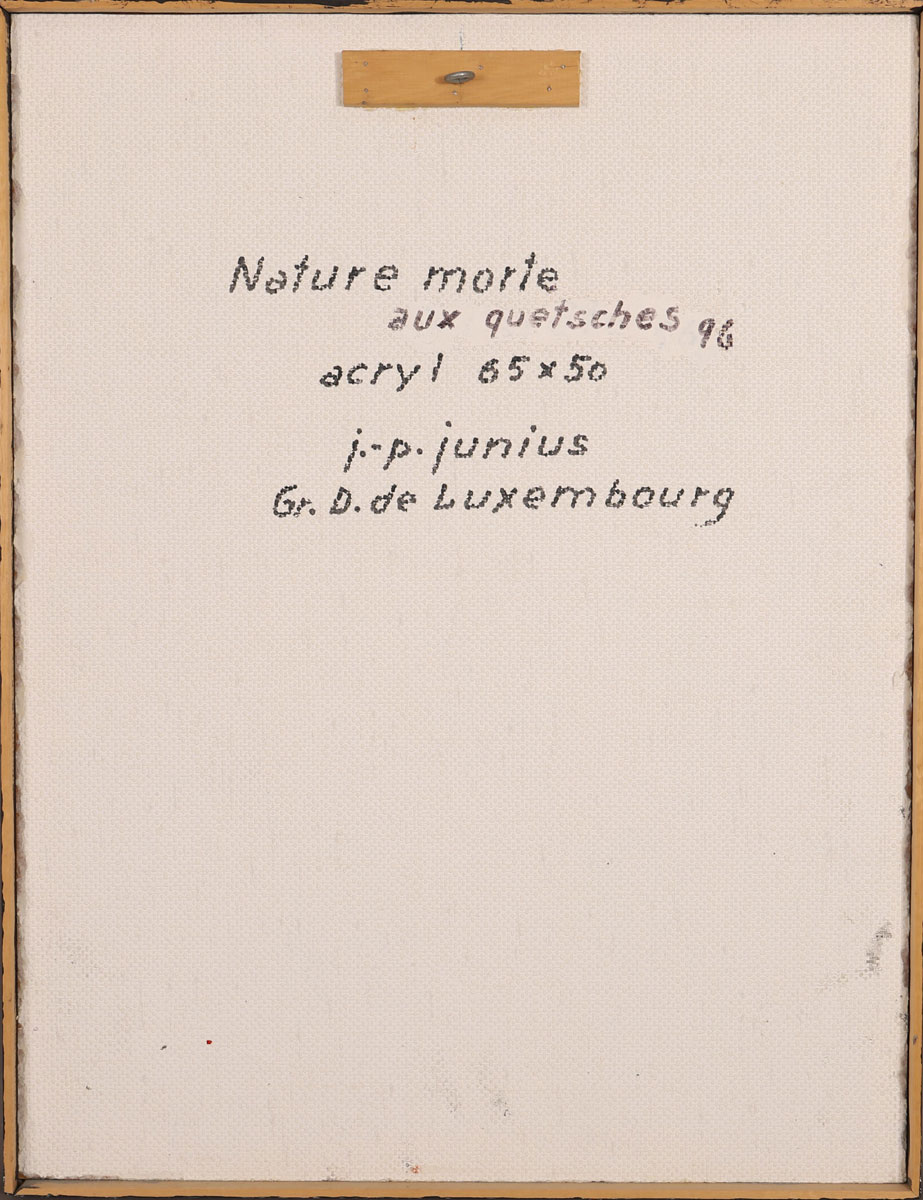 Nature morte
aux quetsches 96
acryl 65x50
j.-p. junius
Gr. D. de Luxembourg